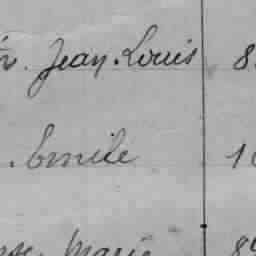 Jean Louis 8
Emile 1
Marie 8